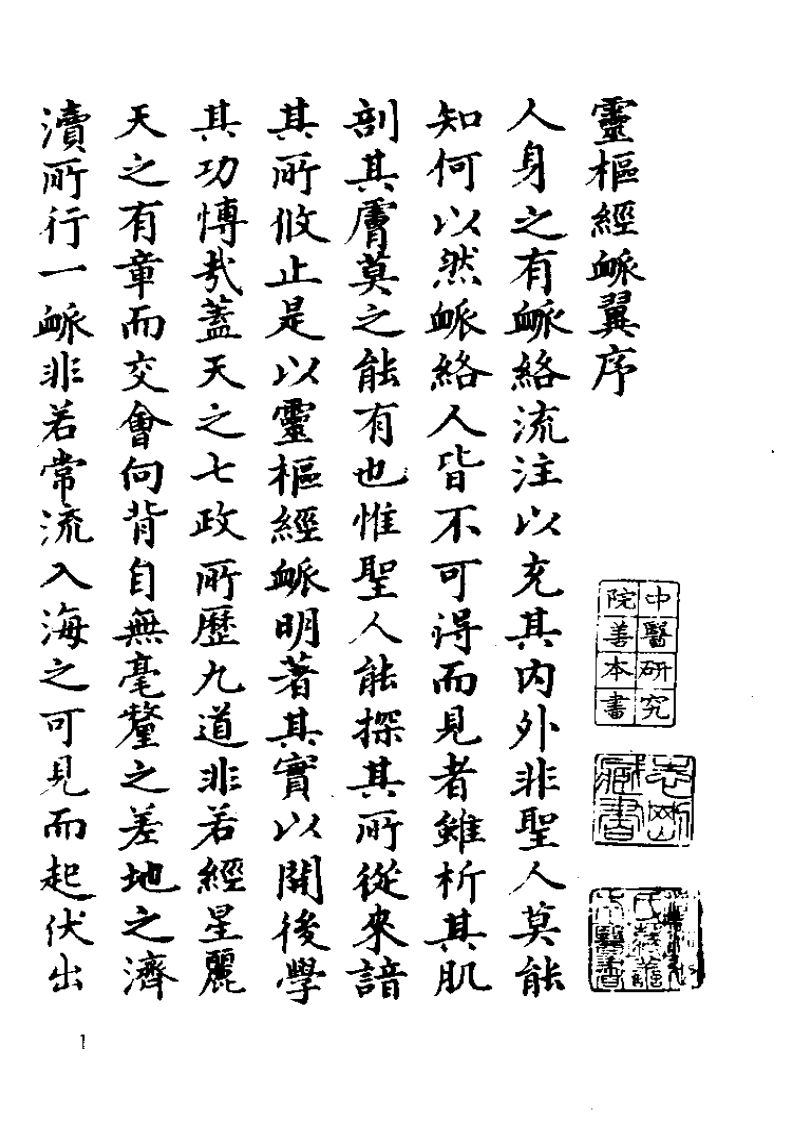 靈樞經脈翼序
人身之有脈絡流注以充其內外非聖人莫能
知何以然脈絡人皆不可得而見者雖析其肌
剖其膚莫之能有也惟聖人能探其所從來諳
其所攸止是以靈樞經脈明著其實以開後學
其功愽哉蓋天之七政所歷九道非若經星麗
天之有章而交會向背自無毫釐之差地之濟
瀆所行一脈非若常流入海之可見而起伏出
中醫研究
院善本書
藏書
1